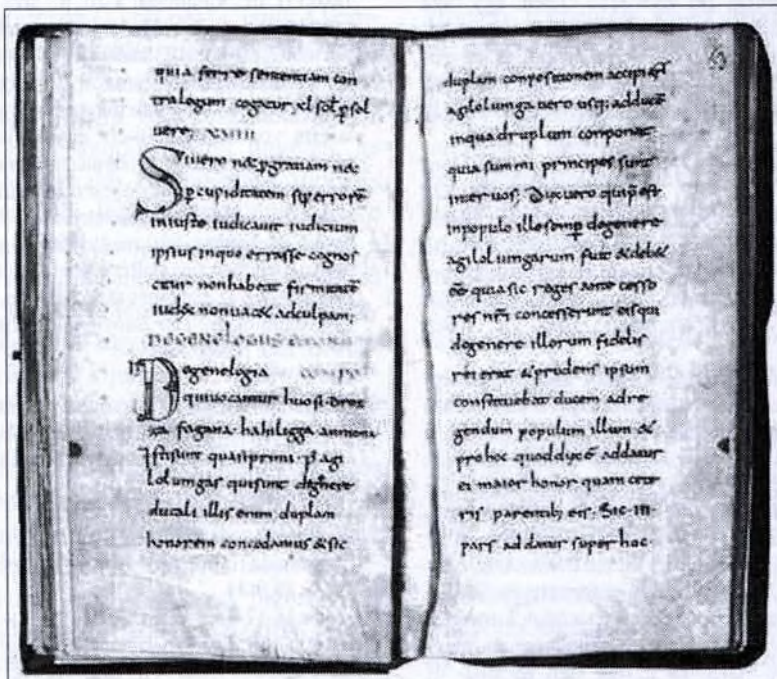 quia ferre sententiam con
tra legem cogatur xl sol p sol
vere; XVIIII
Si vero nec p gratiam nec
p cupiditatem sed p errorē
iniuste iudicavit iudicium
ipsius in quo errasse cognos
citur non habeat firmitatē
iudex non vacet ad culpam;
DE GENELOGIIS
De genelogia
qui vocantur huosi drox
za fagana hahiligga anniona
isti sunt quasi primi p agi
lolungas qui sunt de genere
ducali illis enim duplum
honorem concedamus & sic
63
duplam conpositionem accipi
agilolunga vero usq; ad ducē
in quadruplum conponat
quia summi principes sunt
inter vos; Dux vero qui p est
in populo ille semp de genere
agilolungarum fuit & deb&
eē quia sic reges ante cesso
res nr̄i concesserunt eis qui
de genere illorum fidelis
rei erat & prudens ipsum
constituebat ducem ad re
gendum populum illum &
pro hoc quod dux ē addatur
ei maior honor quam cete
ris parentib; eis; Sic III
pars addatur super hoc